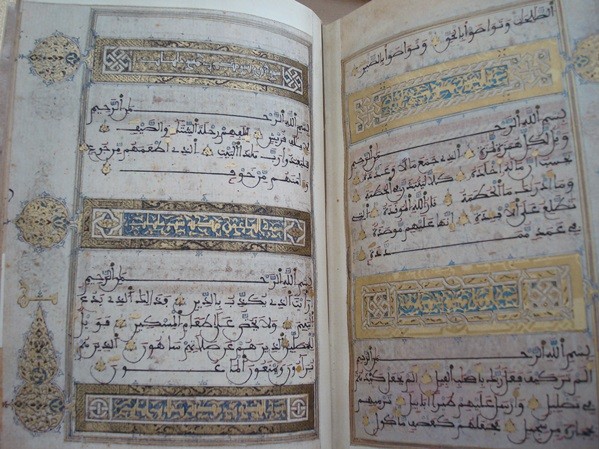 الصالحات وتواصوا بالحق وتواصوا بالصبر
بسم الله الرحمن الرحيم
ويل لكل همزة لمزة الذي جمع مالا وعدده
يحسب أن ماله أخلده كلا لينبذن في الحطمة
وما أدراك ما الحطمة نار الله الموقدة التي
تطلع على الأفئدة إنها عليهم موصدة
في عمد ممددة
بسم الله الرحمن الرحيم
ألم تر كيف فعل ربك بأصحاب الفيل ألم يجعل كيدهم
في تضليل وأرسل عليهم طيرا أبابيل ترميهم
بحجارة من سجيل فجعلهم كعصف مأكول
بسم الله الرحمن الرحيم
لإيلاف قريش إيلافهم رحلة الشتاء والصيف
فليعبدوا رب هذا البيت الذي أطعمهم من جوع
وآمنهم من خوف
بسم الله الرحمن الرحيم
أرأيت الذي يكذب بالدين فذلك الذي يدع
اليتيم ولا يحض على طعام المسكين فويل
للمصلين الذين هم عن صلاتهم ساهون الذين هم
يراءون ويمنعون الماعون